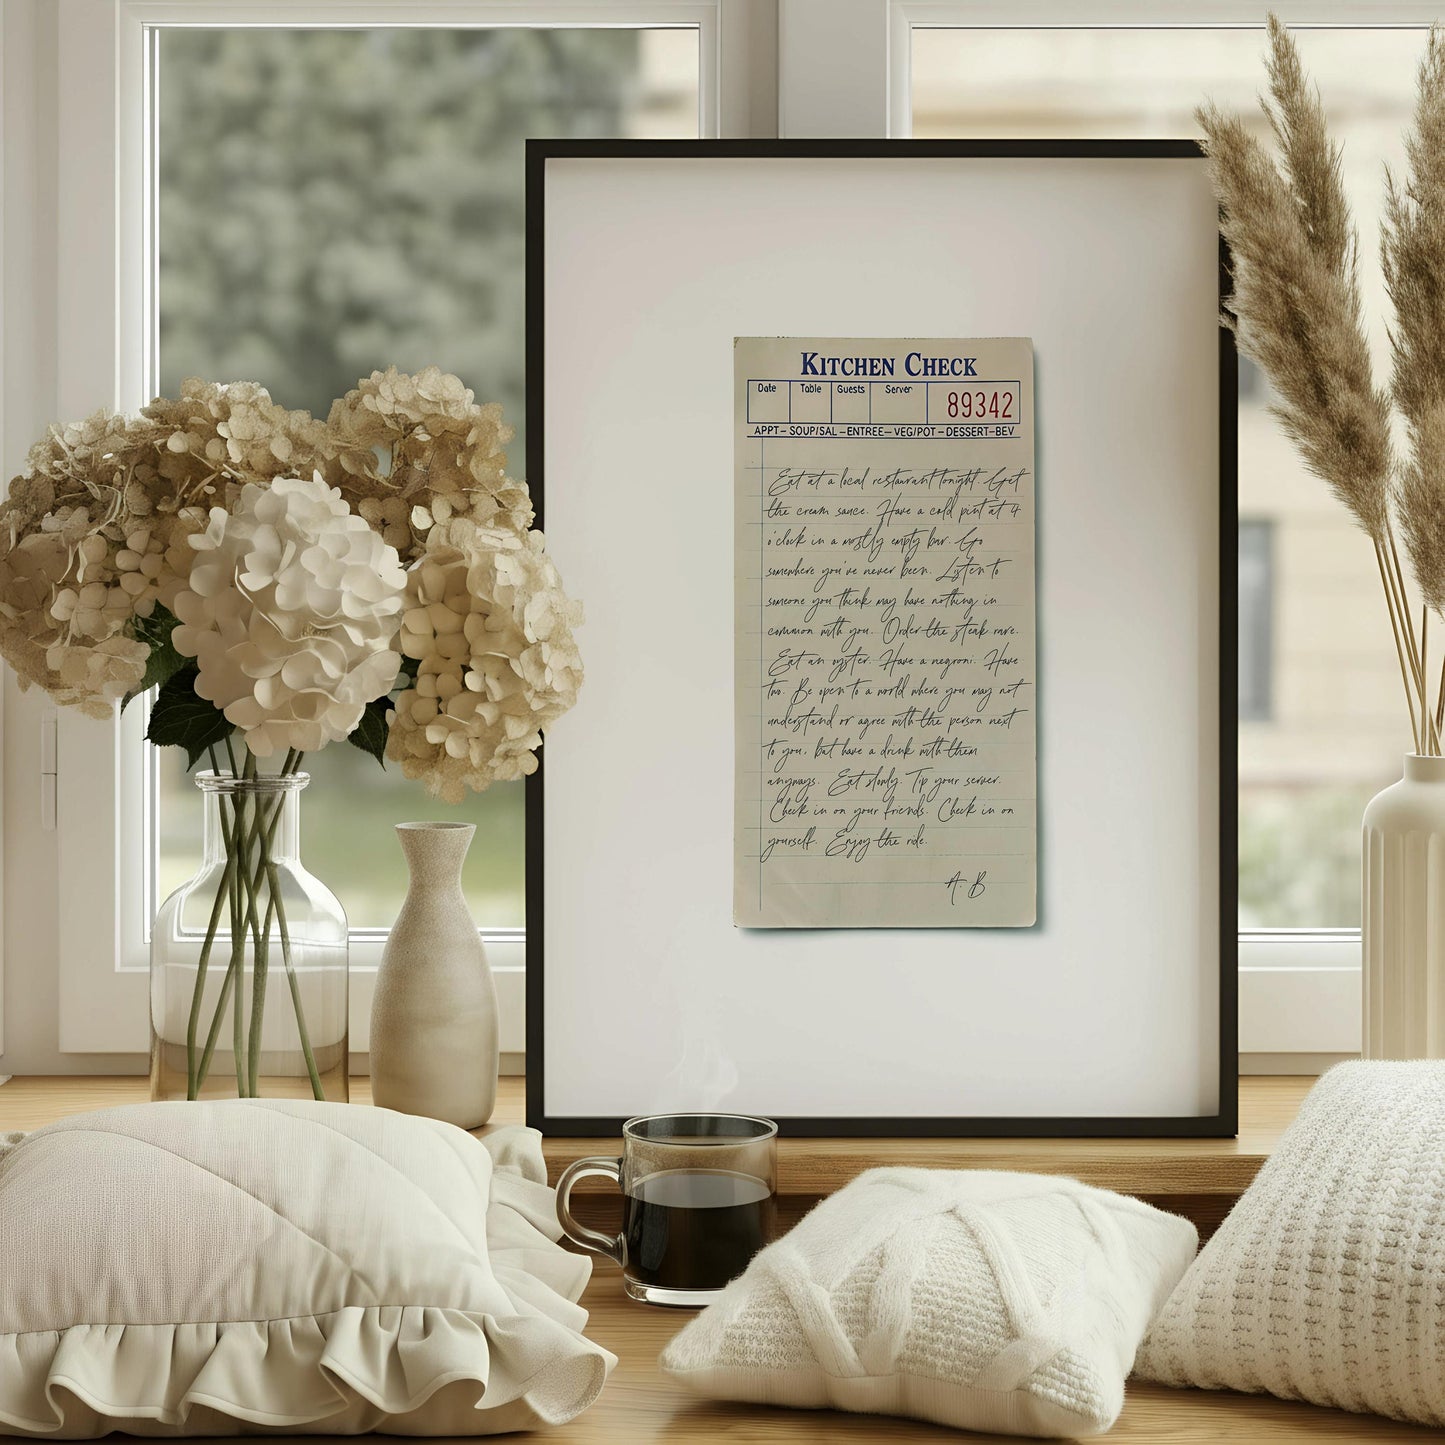 KITCHEN CHECK
Date Table Guests Server 89342
APPT – SOUP/SAL – ENTREE – VEG/POT – DESSERT – BEV
Eat at a local restaurant tonight. Get
the cream sauce. Have a cold pint at 4
o'clock in a mostly empty bar. Go
somewhere you've never been. Listen to
someone you think may have nothing in
common with you. Order the steak rare.
Eat an oyster. Have a negroni. Have
two. Be open to a world where you may not
understand or agree with the person next
to you, but have a drink with them
anyways. Eat slowly. Tip your server.
Check in on your friends. Check in on
yourself. Enjoy the ride.
A. B